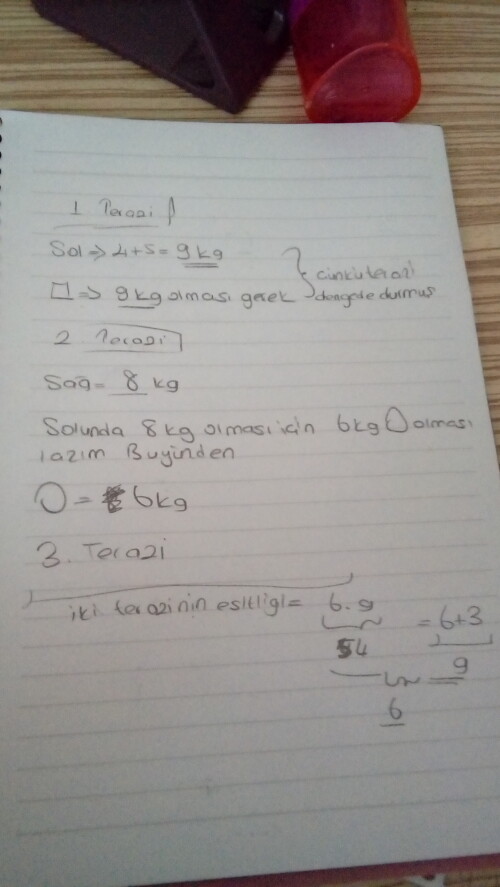 1 Terazi
Sol ⇒ 4+5 = 9 kg
□ ⇒ 9 kg olması gerek
çünkü terazi
dengede durmuş
2 Terazi
Sağ = 8 kg
Solunda 8 kg olması için 6 kg O olması
lazım Buyünden
O = 6 kg
3. Terazi
iki terazinin esitligi = 6.9 = 6+3
54 9
6